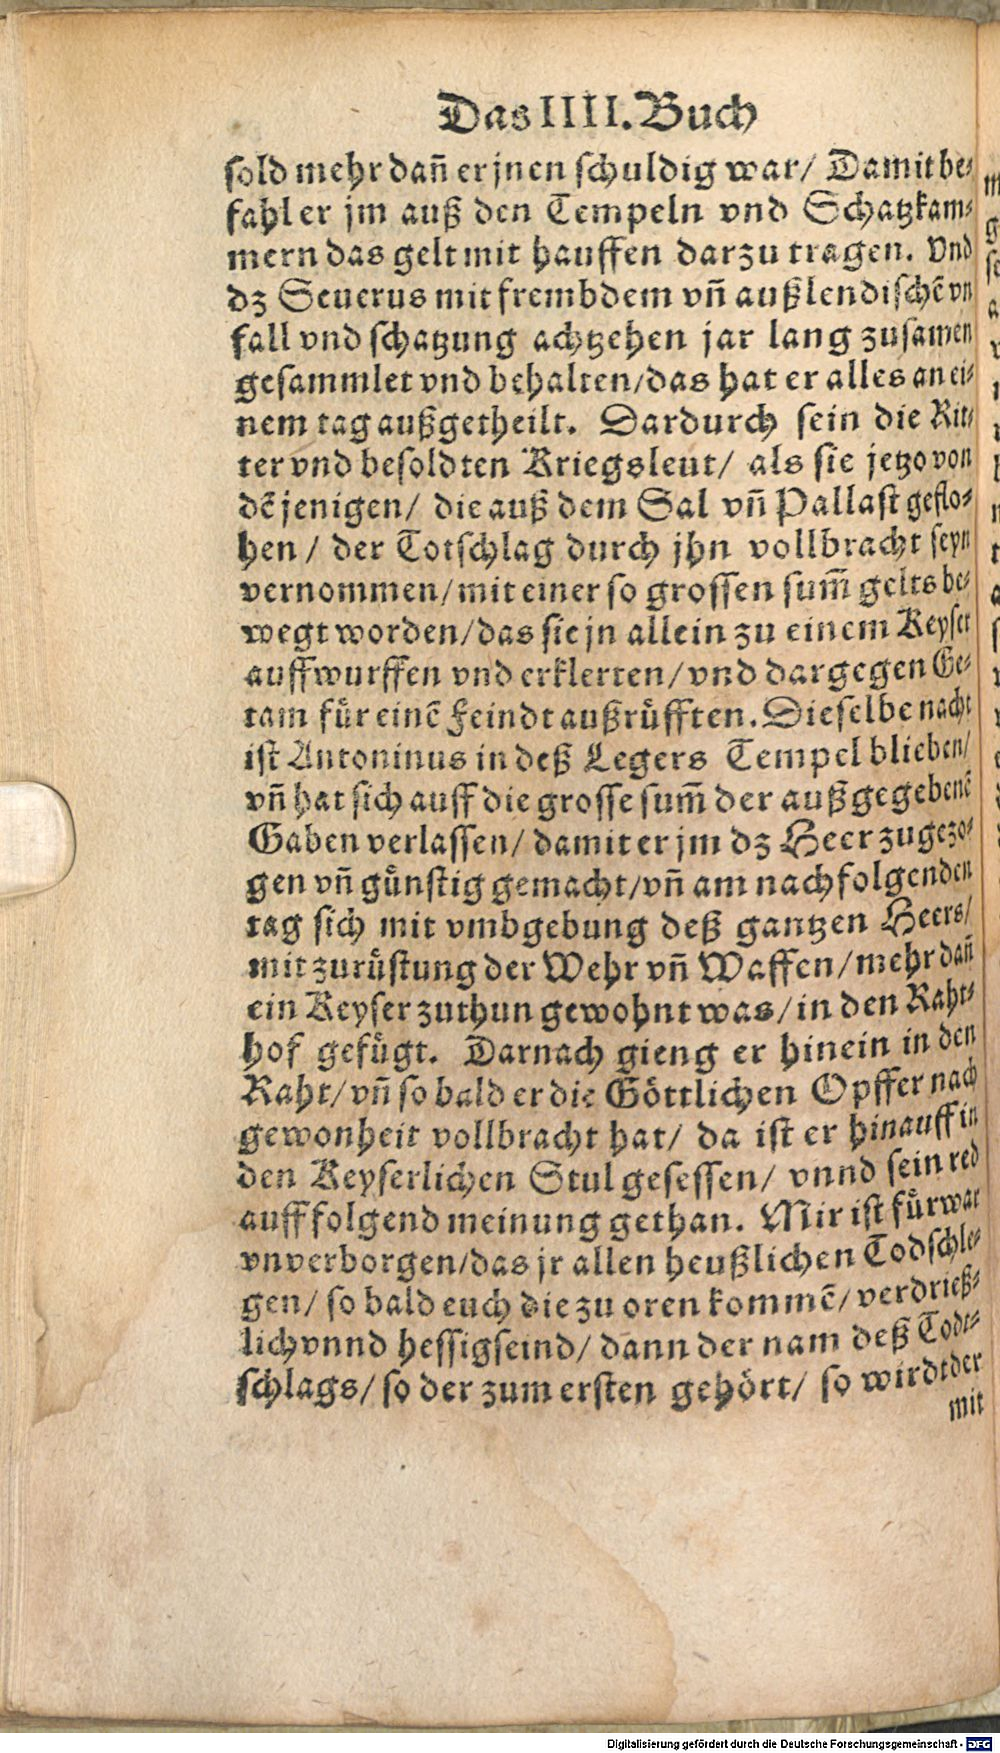 Das IIII. Buch
sold mehr dañ er jnen schuldig war/ Damit be⸗
fahl er jm auß den Tempeln vnd Schatzkam⸗
mern das gelt mit hauffen darzu tragen. Vnd
dz Seuerus mit frembdem vñ außlendischẽ vn
fall vnd schatzung achtzehen jar lang zusamen
gesammlet vnd behalten/das hat er alles an ei⸗
nem tag außgetheilt. Dardurch sein die Rit⸗
ter vnd besoldten Kriegsleut/ als sie jetzo von
dẽ jenigen/ die auß dem Sal vñ Pallast geflo⸗
hen/ der Totschlag durch jhn vollbracht seyn
vernommen/mit einer so grossen sum̃ gelts be⸗
wegt worden/das sie jn allein zu einem Keyser
auffwurffen vnd erklerten/vnd dargegen Ge⸗
tam fuͤr einẽ Feindt außruͤfften. Dieselbe nacht
ist Antoninus in deß Legers Tempel blieben/
vñ hat sich auff die grosse sum̃ der außgegebenẽ
Gaben verlassen/ damit er jm dz Heer zugezo⸗
gen vñ guͤnstig gemacht/vñ am nachfolgenden
tag sich mit vmbgebung deß gantzen Heers/
mit zuruͤstung der Wehr vñ Waffen/mehr dañ
ein Keyser zuthun gewohnt was/in den Raht⸗
hof gefuͤgt. Darnach gieng er hinein in den
Raht/vñ so bald er die Goͤttlichen Opffer nach
gewonheit vollbracht hat/ da ist er hinauff in
den Keyserlichen Stul gesessen/ vnnd sein red
auff folgend meinung gethan. Mir ist fuͤrwar
vnverborgen/das jr allen heußlichen Todschle⸗
gen/ so bald euch die zu oren kommẽ/ verdrieß⸗
lich vnnd hessig seind/ dann der nam deß Todt⸗
schlags/ so der zum ersten gehoͤrt/ so wirdt der
mit
Digitalisierung gefördert durch die Deutsche Forschungsgemeinschaft - DFG